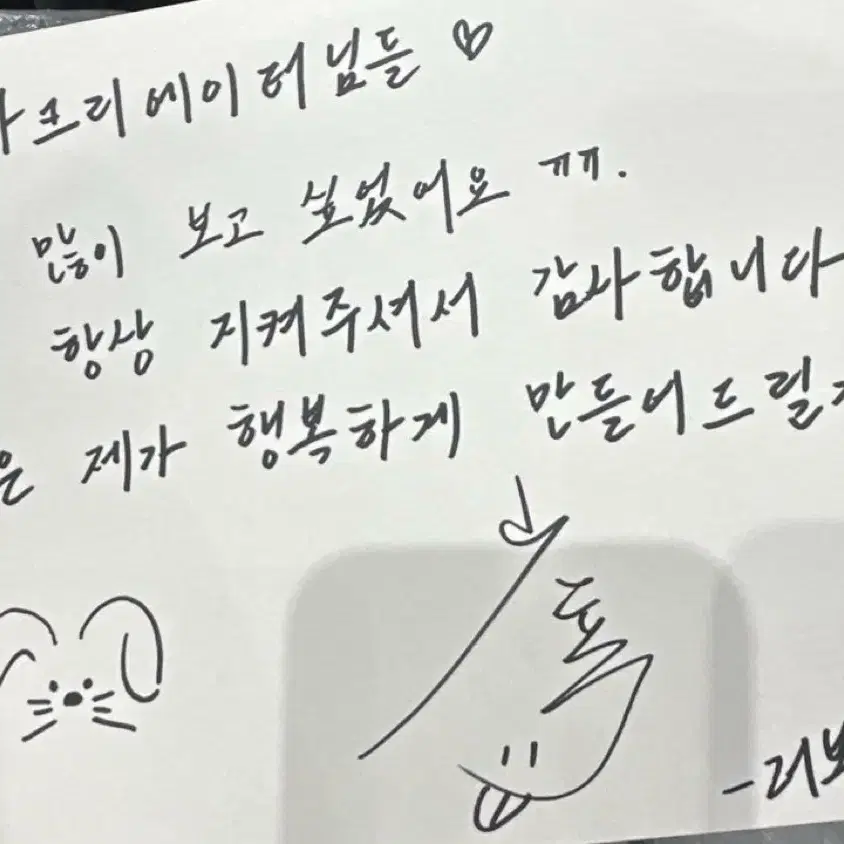 크리에이터님들 ♡
많이 보고 싶었어요 ㅠㅠ.
항상 지켜주셔서 감사합니다
제가 행복하게 만들어드릴